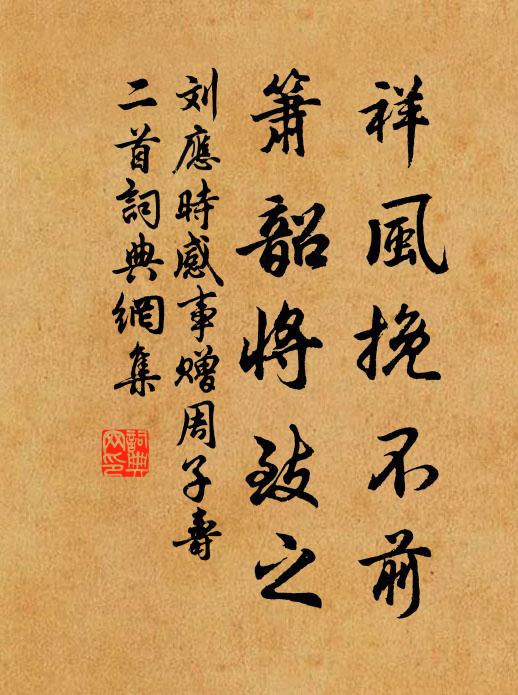 祥風挽不前
簫韶將致之
刘應時感事贈周子壽
二首詞典網集
詞典
网印